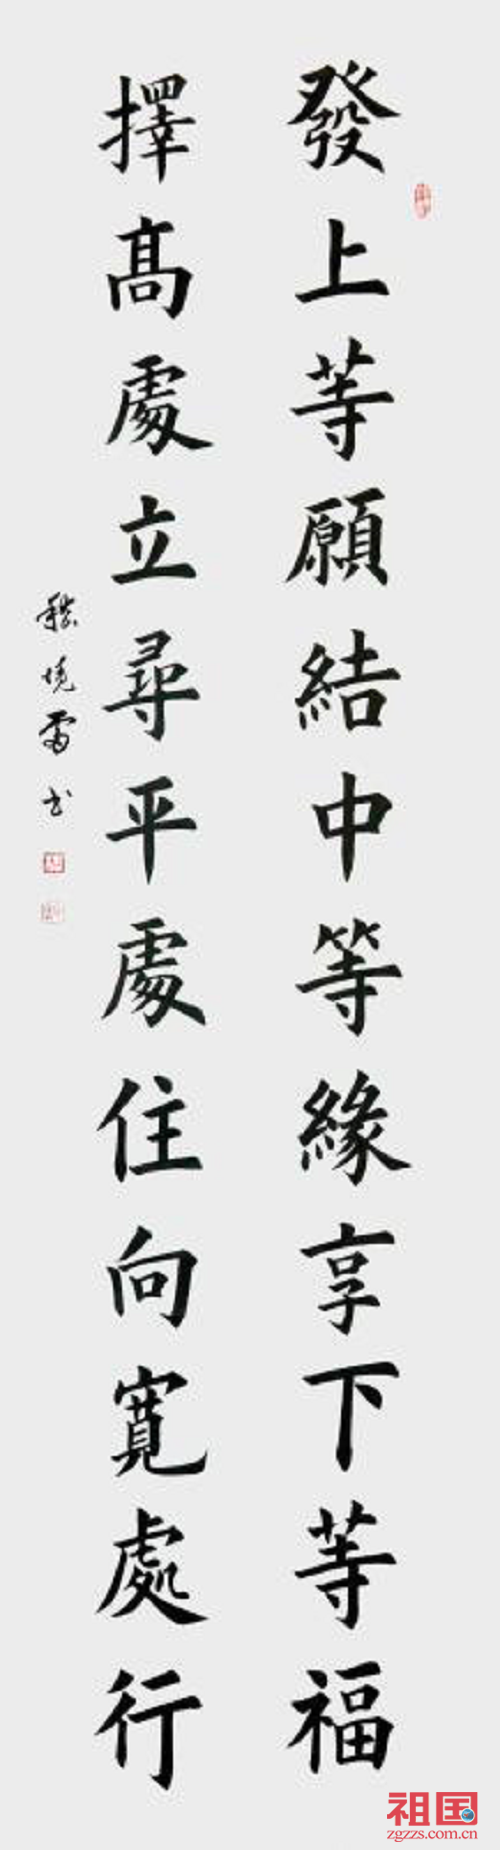 發上等願結中等緣享下等福
擇高處立尋平處住向寬處行
嵇境雷书
祖国
zgzzs.com.cn